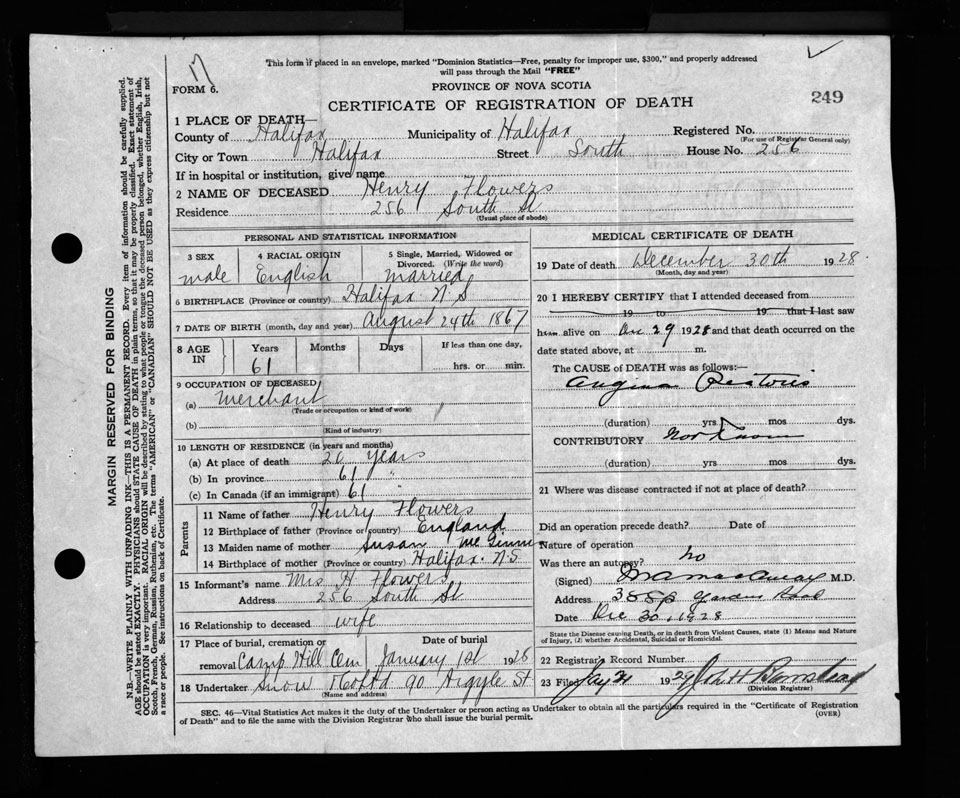 This form if placed in an envelope, marked "Dominion Statistics—Free, penalty for improper use, $300," and properly addressed
will pass through the Mail "FREE"
17
FORM 6.
PROVINCE OF NOVA SCOTIA
CERTIFICATE OF REGISTRATION OF DEATH
249
1 PLACE OF DEATH—
County of Halifax Municipality of Halifax Registered No.
(For use of Registrar General only)
City or Town Halifax Street South House No. 256
If in hospital or institution, give name
2 NAME OF DECEASED Henry Flowers
Residence 256 South St
(Usual place of abode)
PERSONAL AND STATISTICAL INFORMATION
3 SEX 4 RACIAL ORIGIN 5 Single, Married, Widowed or
Divorced. (Write the word)
male English married
6 BIRTHPLACE (Province or country) Halifax N.S
7 DATE OF BIRTH (month, day and year) August 24th 1867
8 AGE IN Years Months Days If less than one day,
61 hrs. or min.
9 OCCUPATION OF DECEASED
(a) Merchant
(Trade or occupation or kind of work)
(b)
(Kind of industry)
10 LENGTH OF RESIDENCE (in years and months)
(a) At place of death 20 years
(b) In province 61 "
(c) In Canada (if an immigrant) 61 "
Parents
11 Name of father Henry Flowers
12 Birthplace of father (Province or country) England
13 Maiden name of mother Susan
14 Birthplace of mother (Province or country) Halifax N.S.
15 Informant's name Mrs H Flowers
Address 256 South St
16 Relationship to deceased wife
17 Place of burial, cremation or Date of burial
removal Camp Hill Cem January 1st 1928
18 Undertaker Snow & Co Ltd 90 Argyle St
(Name and address)
MEDICAL CERTIFICATE OF DEATH
19 Date of death December 30th 1928
(Month, day and year)
20 I HEREBY CERTIFY that I attended deceased from
19 to 19 that I last saw
him alive on Dec 29 1928 and that death occurred on the
date stated above, at m.
The CAUSE OF DEATH was as follows:—
Angina Pectoris
(duration) yrs mos dys.
CONTRIBUTORY
(duration) yrs mos dys.
21 Where was disease contracted if not at place of death?
Did an operation precede death? Date of
Nature of operation
Was there an autopsy? no
(Signed) M.D.
Address
Date Dec 30, 1928
State the Disease causing Death, or in death from Violent Causes, state (1) Means and Nature
of Injury, (2) whether Accidental, Suicidal or Homicidal.
22 Registrar's Record Number
23 Filed 1929
(Division Registrar)
SEC. 46—Vital Statistics Act makes it the duty of the Undertaker or person acting as Undertaker to obtain all the particulars required in the "Certificate of Registration
of Death" and to file the same with the Division Registrar who shall issue the burial permit.
(OVER)
MARGIN RESERVED FOR BINDING
N.B.—WRITE PLAINLY WITH UNFADING INK—THIS IS A PERMANENT RECORD. Every item of information should be carefully supplied.
AGE should be stated EXACTLY. PHYSICIANS should STATE CAUSE OF DEATH in plain terms, so that it may be properly classified. Exact statement of
OCCUPATION is very important. RACIAL ORIGIN will be described by stating to what people or tongue the deceased person belonged, whether English, Irish,
Scotch, French, German, Russian, Ruthenian, etc. The terms "AMERICAN" or "CANADIAN" SHOULD NOT BE USED as they express citizenship but not
a race or people. See instructions on back of Certificate.